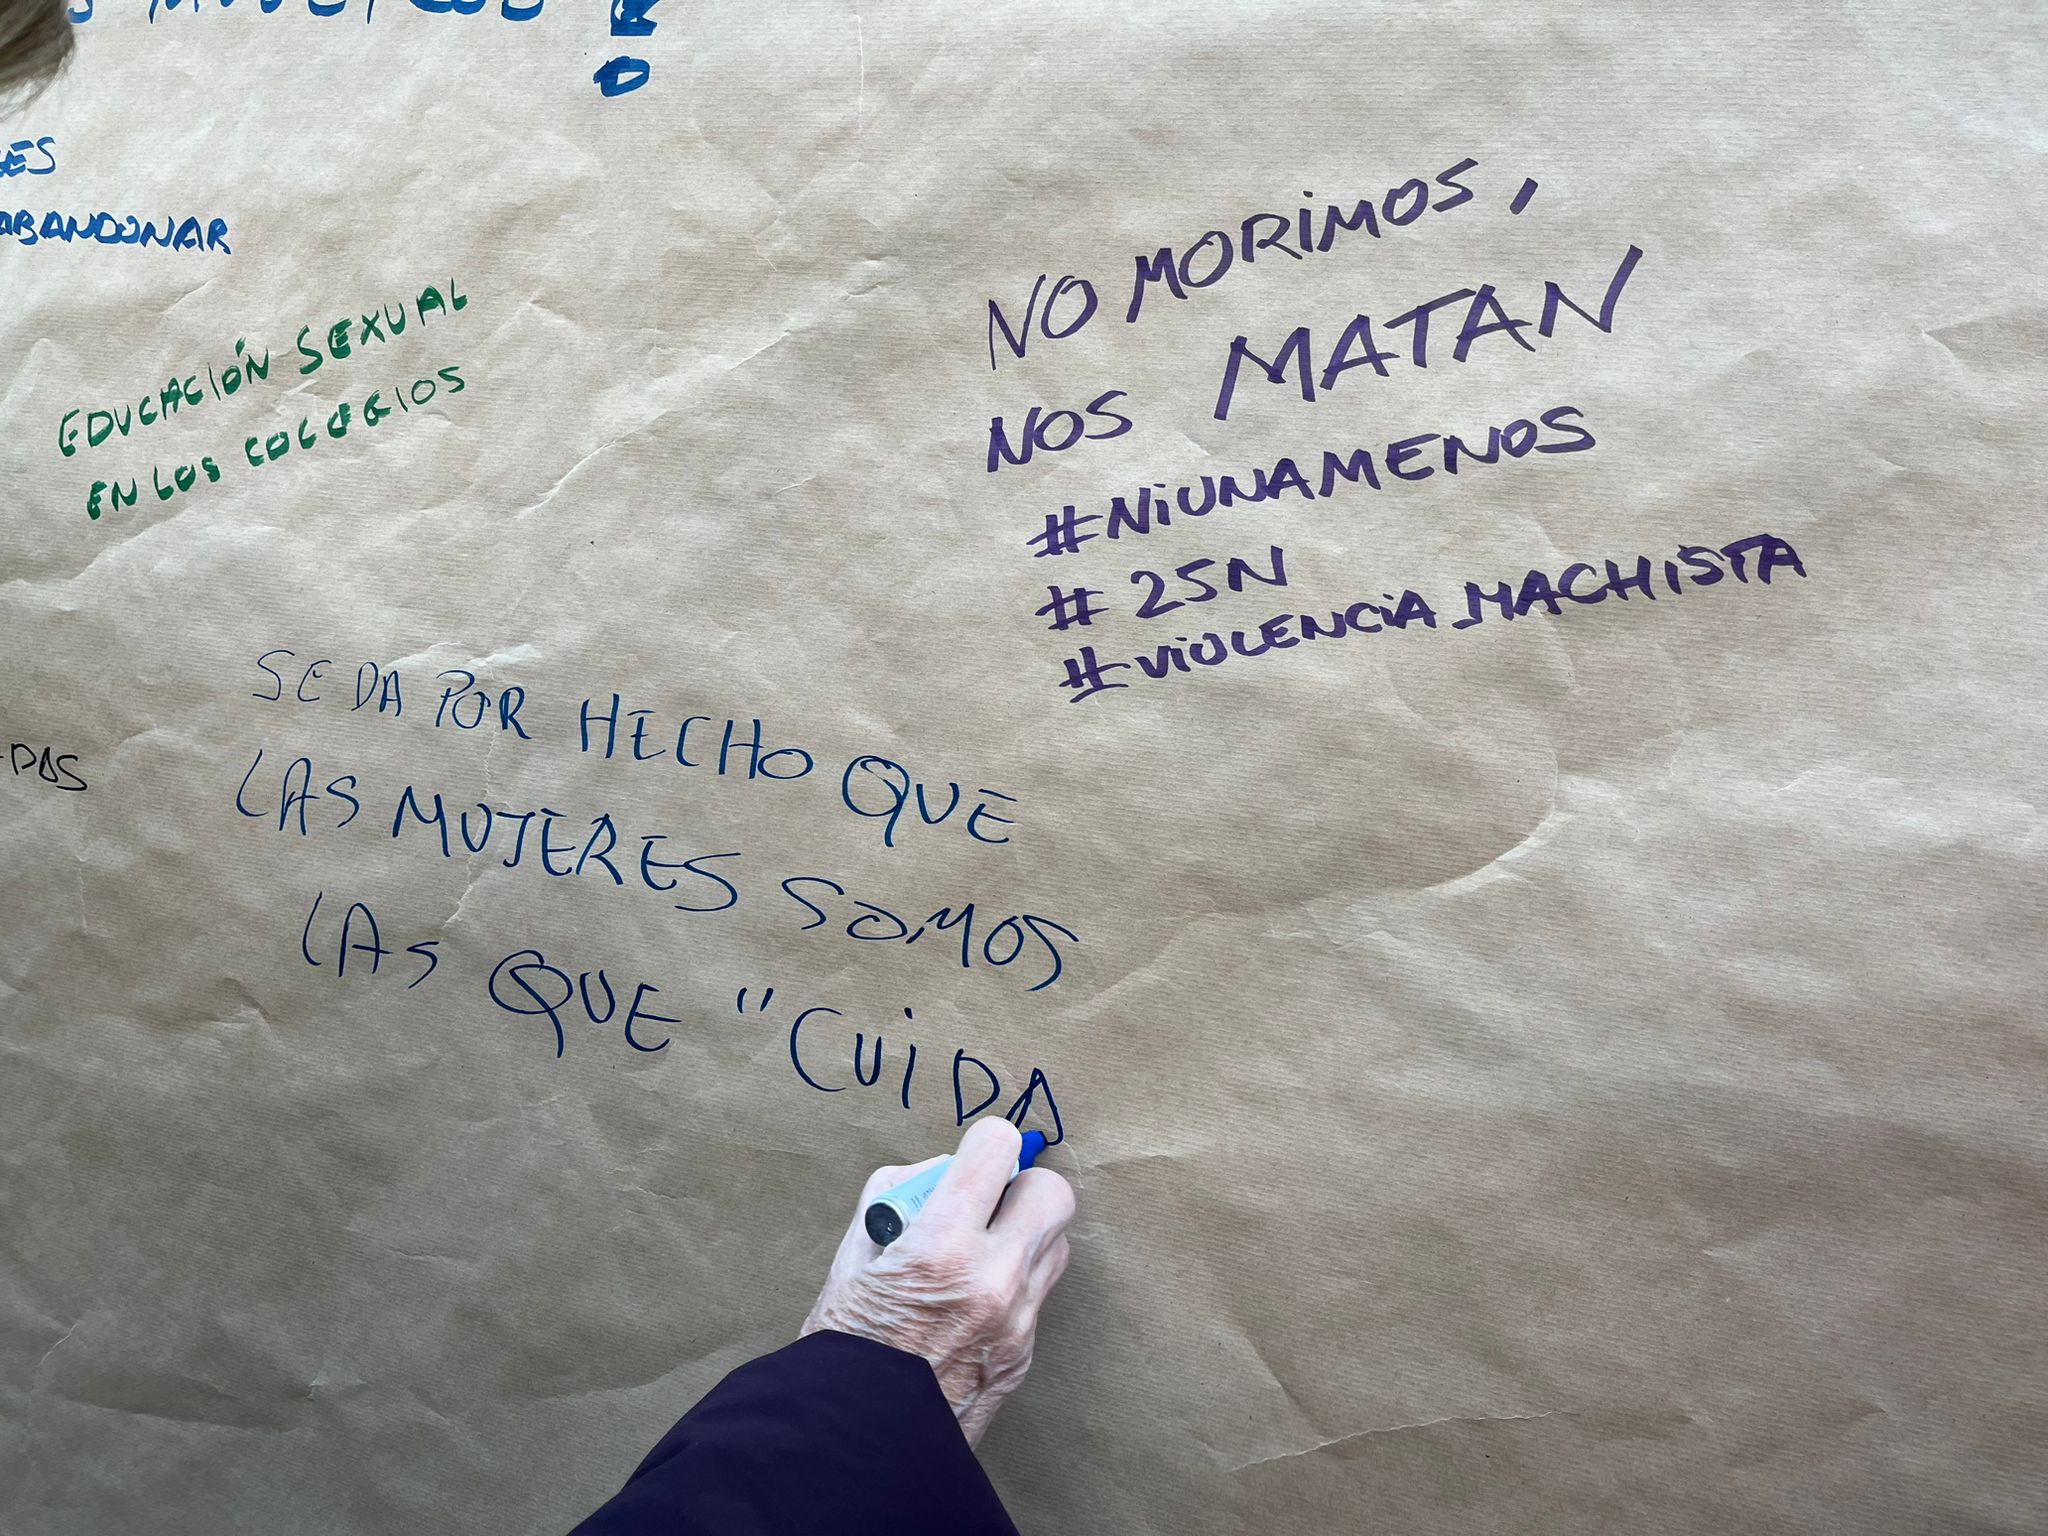 ABANDONAR
EDUCACIÓN SEXUAL
EN LOS COLEGIOS
NO MORIMOS,
NOS MATAN
#NIUNAMENOS
# 25N
#VIOLENCIA_MACHISTA
SE DA POR HECHO QUE
LAS MUJERES SOMOS
LAS QUE "CUIDA